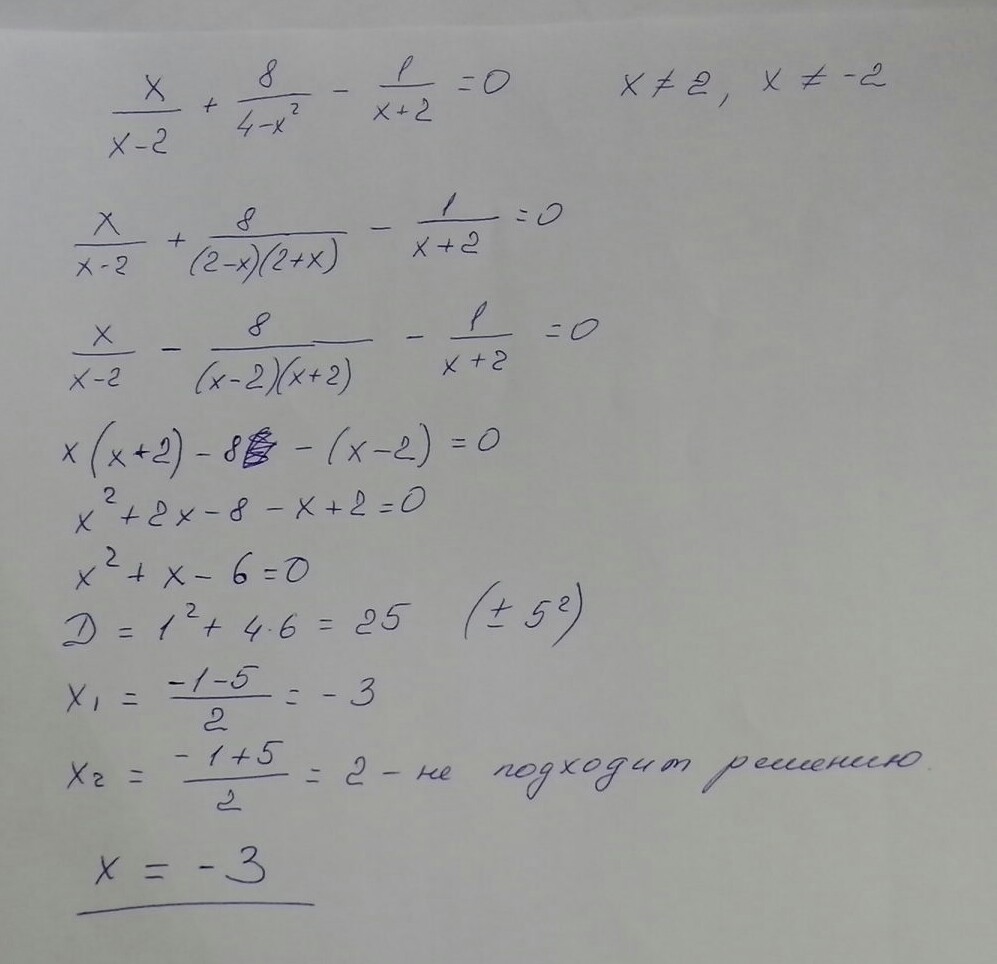 x/(x-2) + 8/(4-x²) - 1/(x+2) = 0 x ≠ 2, x ≠ -2
x/(x-2) + 8/((2-x)(2+x)) - 1/(x+2) = 0
x/(x-2) - 8/((x-2)(x+2)) - 1/(x+2) = 0
x(x+2) - 8 - (x-2) = 0
x² + 2x - 8 - x + 2 = 0
x² + x - 6 = 0
D = 1² + 4·6 = 25 (± 5²)
x₁ = (-1-5)/2 = -3
x₂ = (-1+5)/2 = 2 - не подходит решению.
x = -3